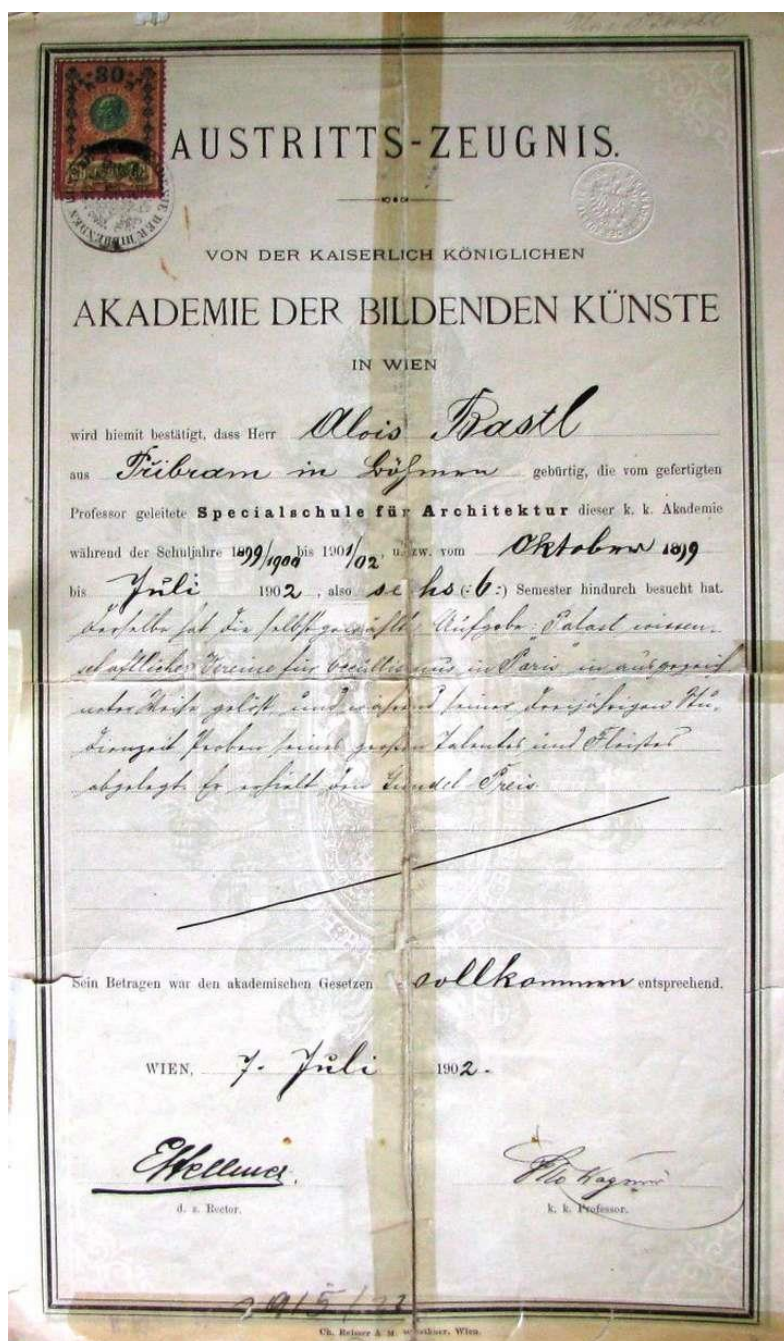 30
AUSTRITTS-ZEUGNIS.
VON DER KAISERLICH KÖNIGLICHEN
AKADEMIE DER BILDENDEN KÜNSTE
IN WIEN
wird hiemit bestätigt, dass Herr Alois Bastl
aus Přibram in Böhmen gebürtig, die vom gefertigten
Professor geleitete Specialschule für Architektur dieser k. k. Akademie
während der Schuljahre 1899/1900 bis 1901/02, u. zw. vom Oktober 1899
bis Juli 1902, also sechs (:6:) Semester hindurch besucht hat.
Derselbe hat die selbstgewählte Aufgabe: Palast wissen-
schaftlicher Vereine für Occultismus in Paris in ausgezeich
neter Weise gelöst und während seiner dreijährigen Stu-
dienzeit Proben seines großen Talentes und Fleißes
abgelegt. Er erhielt den Gundel-Preis.
Sein Betragen war den akademischen Gesetzen vollkommen entsprechend.
WIEN, 7. Juli 1902.
Otto Wagner
d. z. Rector. k. k. Professor.
Ch. Reisser & M. Werthner, Wien.